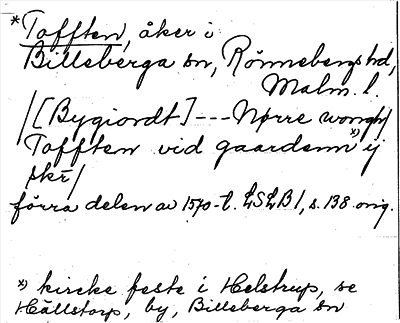 *Tofften, åker i
Billeberga sn, Rönnebergs hd,
Malm. l.
/[Bygiordt] --- Nørre wongh/
Tofften vid gaardenn *) ij
skr/
förra delen av 1570-t. LSLB1, s. 138 orig.
*) kircke feste i Helstrup, se
Hällstorp, by, Billeberga sn